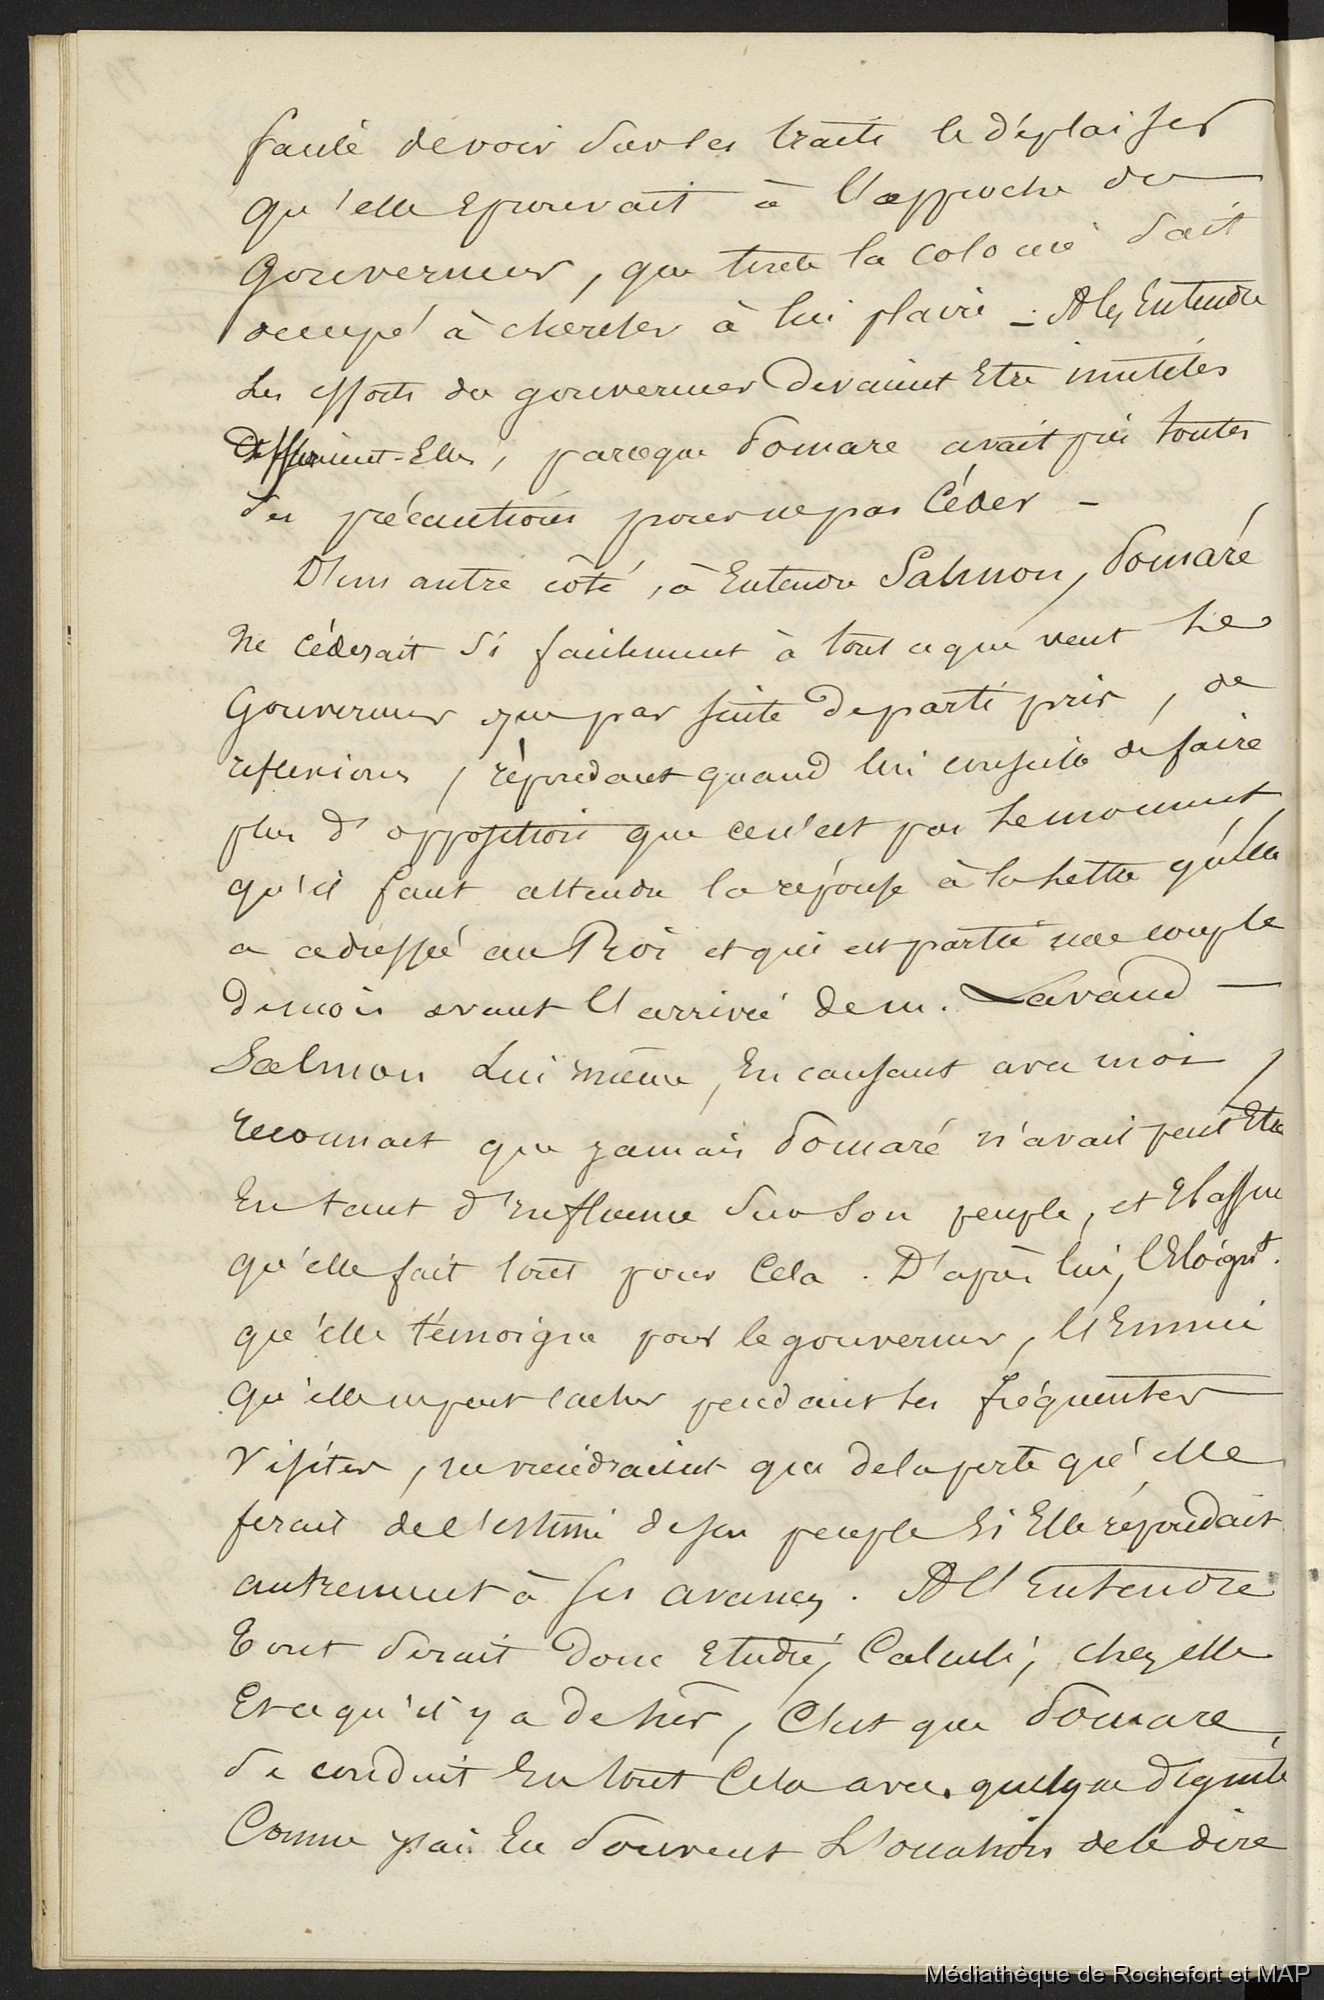 facile de voir sur ses traits le déplaisir
qu'elle Eprouvait à l'approche du
Gouverneur, que toute la colonie Sait
occupé à chercher à lui plaire _. A les Entendre
Les efforts du gouverneur devaient Etre inutiles
disaient-Elles, parceque Pomare avait pris toutes
ses précautions pour ne pas Céder -
D'un autre côté, à Entendre Salmon, Pomaré
Ne Céderait Si facilement à tout ce que veut Le
Gouverneur que par suite de parti pris, de
reflexions, répondant quand lui conseille de faire
plus d'opposition que ce n'est pas Le moment,
qu'il faut attendre la réponse à la Lettre qu'elle
a adressée au Roi et qui est partie une couple
de mois avant l'arrivée de M. Lavaud —
Salmon Lui même, En causant avec moi,
reconnait que jamais Pomaré n'avait peut Etre
Eu tant d'Influence Sur Son peuple, et Il assure
qu'elle fait tout pour Cela. D'après lui, l'Eloignt.
qu'elle témoigne pour le gouverneur, l'Ennui
qu'elle ne peut cacher pendant ses fréquentes
Visites, ne viendraient que de la perte qu'elle
ferait de l'estime de son peuple Si Elle répondait
autrement à ses avances. A l'Entendre
Tout Serait donc Etudié, Calculé, chez elle
Et ce qu'il y a de Sûr, C'est que Pomare
Se conduit En tout Cela avec quelque dignité
Comme j'ai Eu Souvent L'occasion de le dire
Médiathèque de Rochefort et MAP